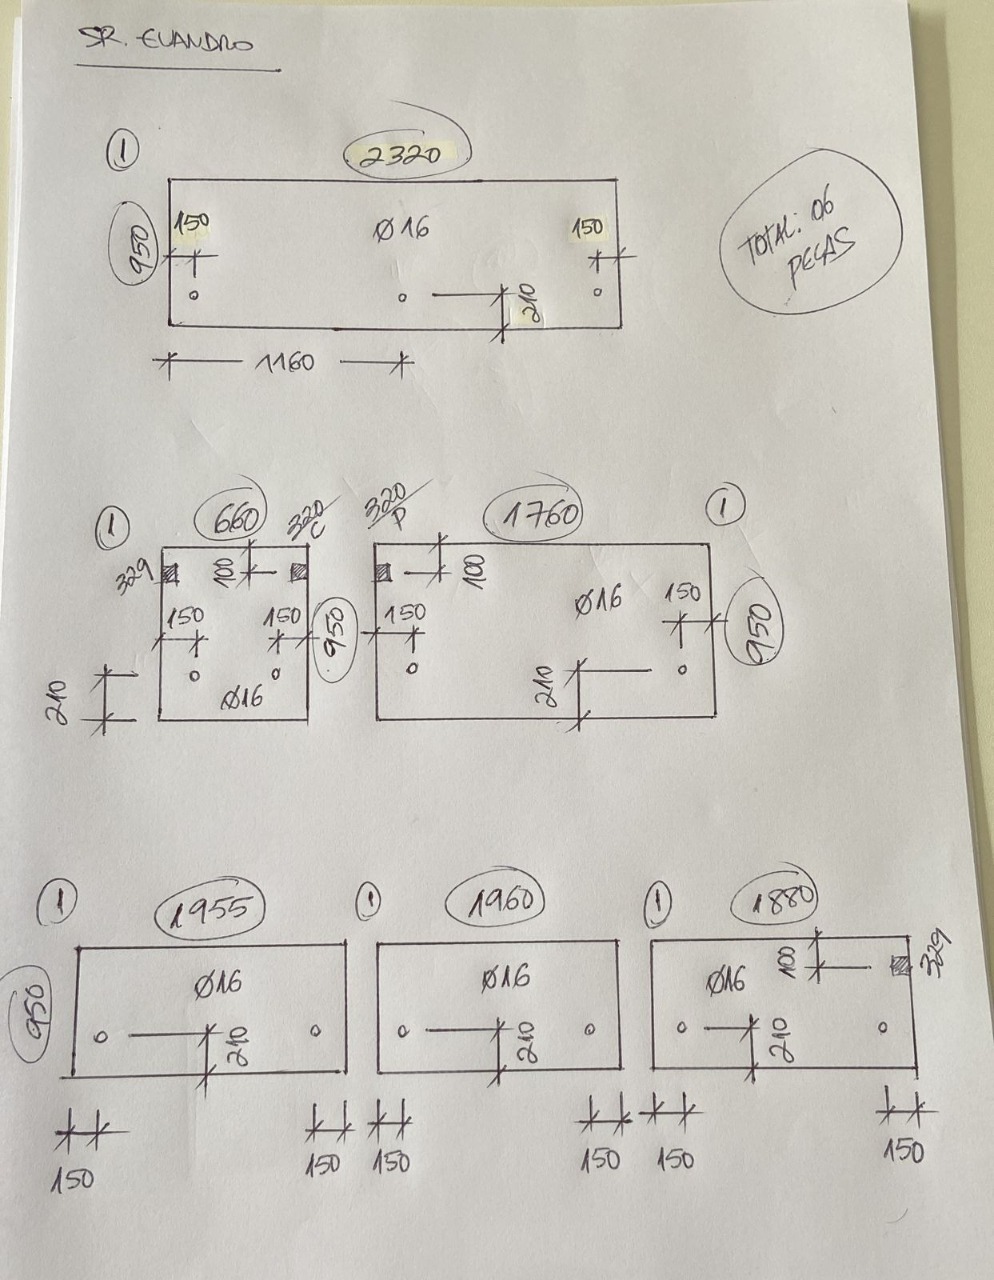 SR. EVANDRO
1
2320
950
150
Ø16
150
210
1160
TOTAL: 06
PEÇAS
1
660
320/C
329
100
150
150
950
210
Ø16
320/P
1760
1
100
Ø16
150
150
950
210
1
1955
950
Ø16
210
150
150
1
1960
Ø16
210
150
150
1
1880
100
329
Ø16
210
150
150